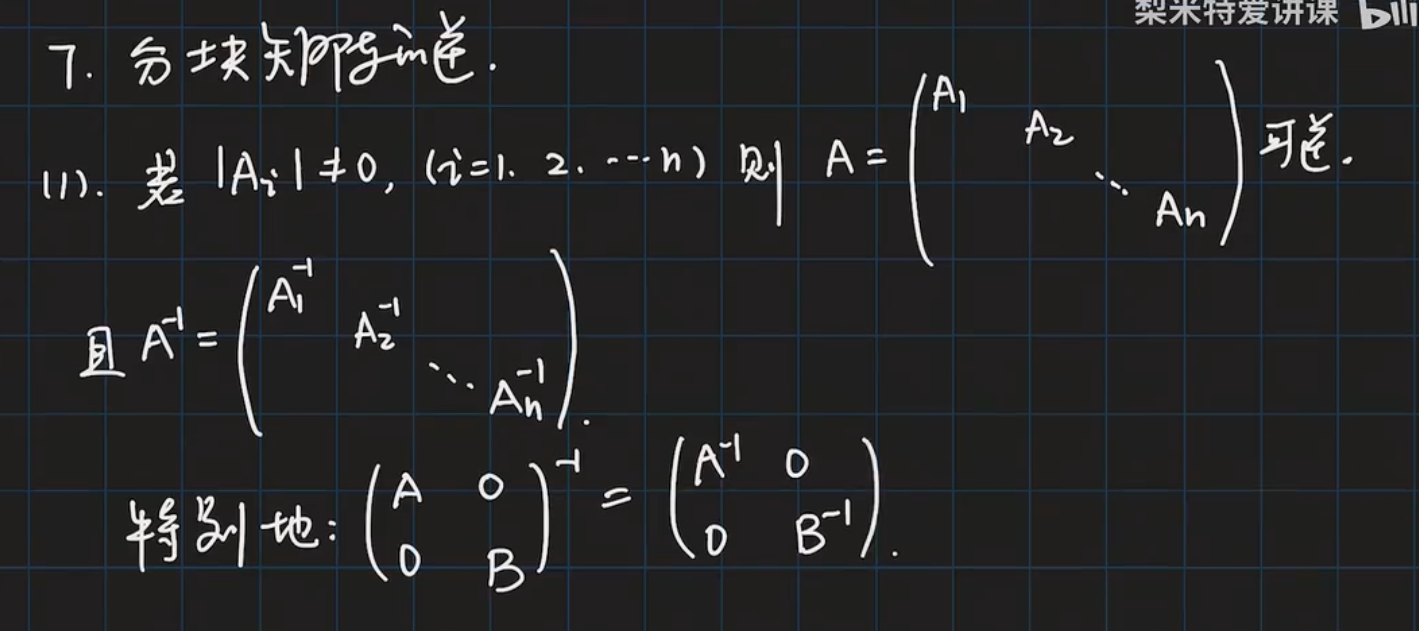 梨米特爱讲课 bili
7. 分块矩阵的逆.
(1). 若 |Aᵢ| ≠ 0, (i=1. 2. ⋯ n) 则 A = (A₁ A₂ ⋱ Aₙ) 可逆.
且 A⁻¹ = (A₁⁻¹ A₂⁻¹ ⋱ Aₙ⁻¹).
特别地: (A 0 0 B)⁻¹ = (A⁻¹ 0 0 B⁻¹).